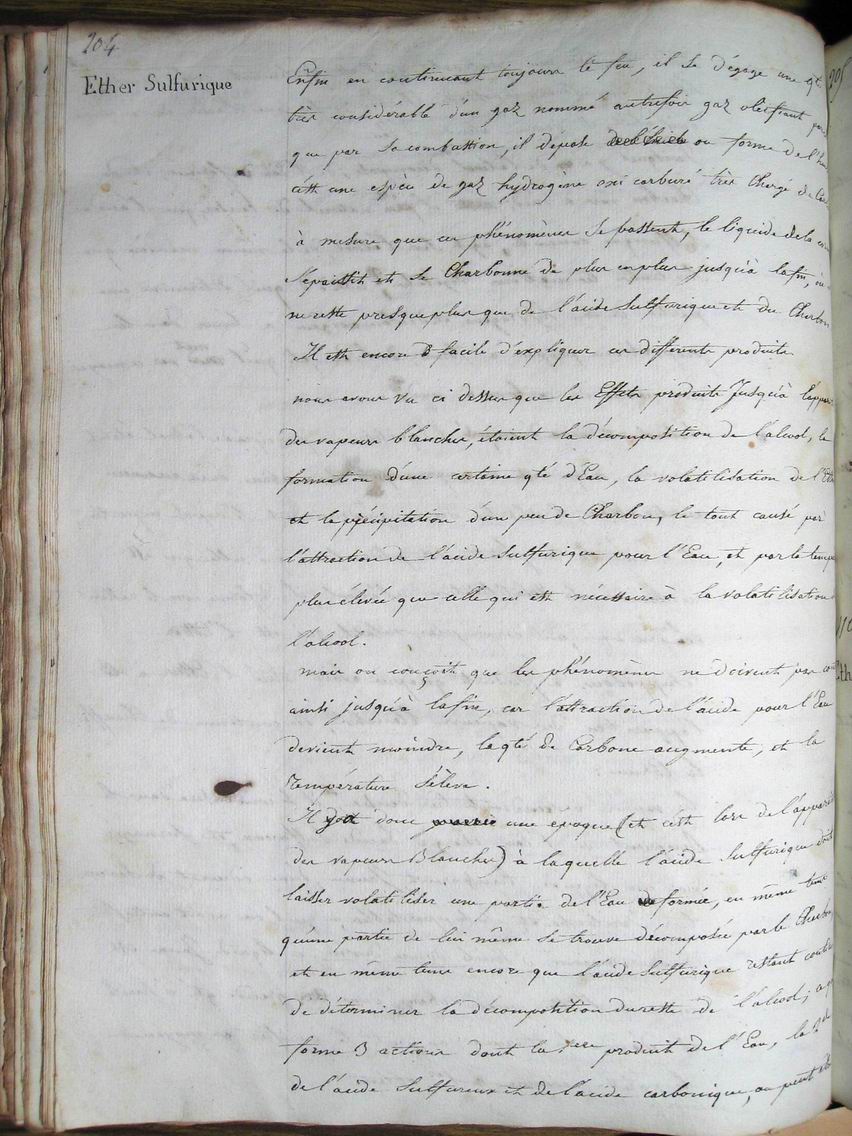 204
Ether Sulfurique
Enfin en continuant toujours le feu, il se degage une qté
très considérable d'un gaz nommé autrefois gaz oléfiant
que par sa combustion, il dépose ou forme de l'
c'est une espèce de gaz hydrogène oxi carburé très Chargé de
à mesure que ces phénomènes se passent, le liquide de la
s'épaissit et se Charbonne de plus en plus jusqu'à la fin, où
ne reste presque plus que de l'acide sulfurique et du Charbon
Il est encore facile d'expliquer ces differents produits
nous avons vu ci dessus que les Effets produits Jusqu'à
des vapeurs blanches, étoient la décomposition de l'alcool, la
formation d'une certaine qté d'Eau, la volatilisation de
et la précipitation d'un peu de Charbon, le tout causé par
l'attraction de l'acide sulfurique pour l'Eau, et par la
plus élevée que celle qui est nécessaire à la volatilisation
l'alcool.
mais on conçoit que les phénomènes ne doivent pas
ainsi jusqu'à la fin, car l'attraction de l'acide pour l'Eau
devient moindre, la qté de Carbone augmente, et la
température s'élève.
Il donc une époque (et c'est lors de
des vapeurs Blanches) à laquelle l'acide sulfurique doit
laisser volatiliser une partie de l'Eau formée, en même tems
qu'une partie de lui même se trouve décomposée par le Charbon
et en même tems encore que l'acide sulfurique restant
de déterminer la décomposition du reste de l'alcool;
forme 3 actions dont la 1ere produit de l'Eau, la 2de
de l'acide sulfureux et de l'acide carbonique, on peut